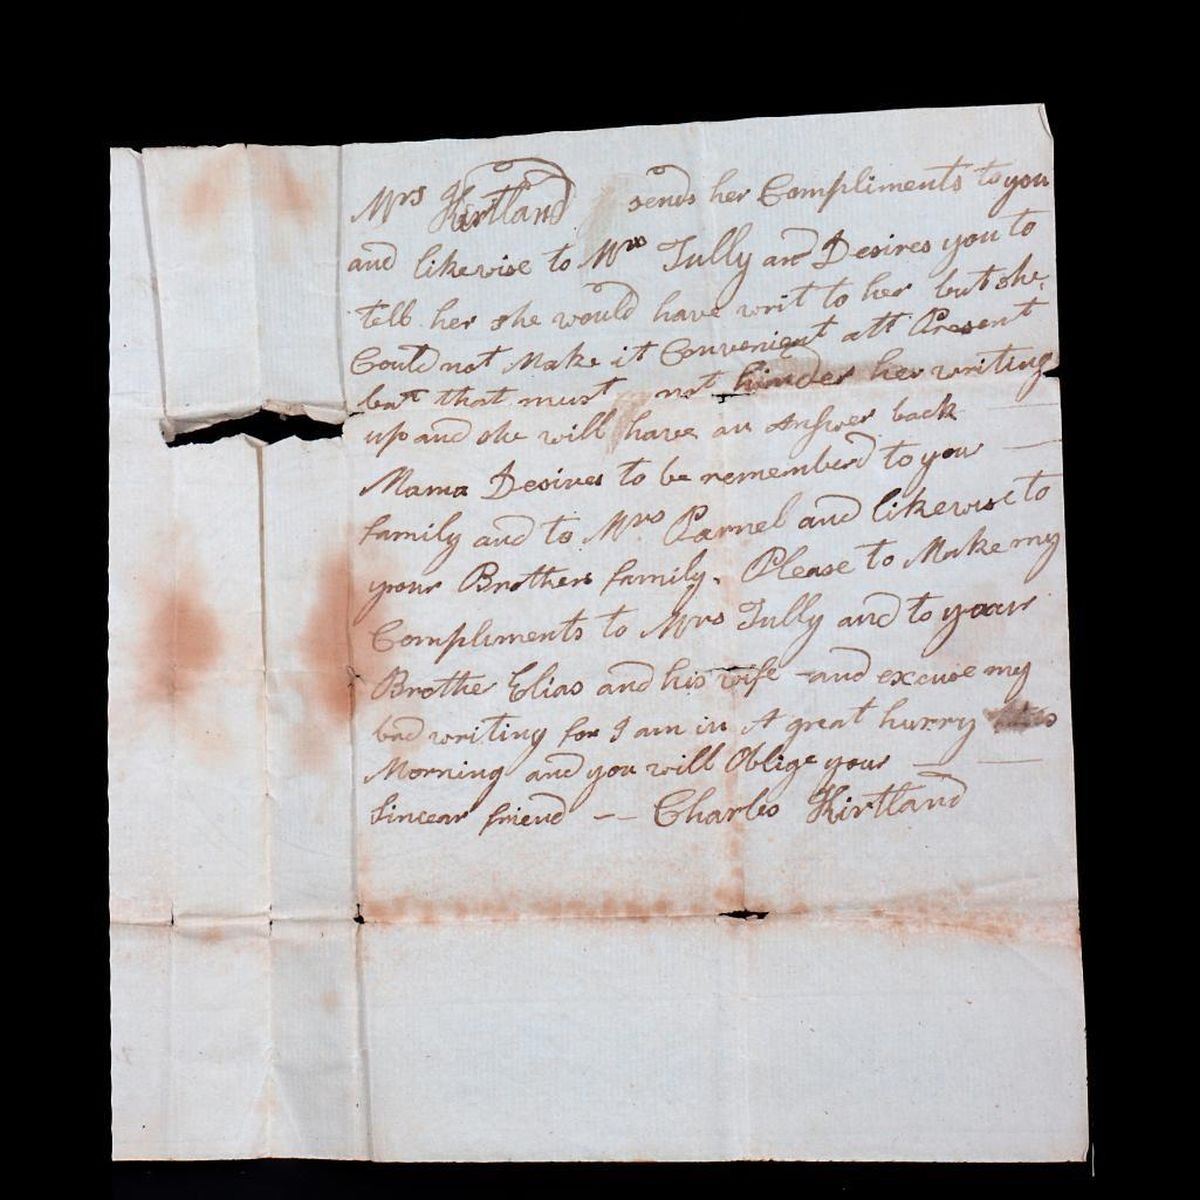 Mrs Kirtland sends her Compliments to you
and likewise to Mrs Tully and Desires you to
tell her she would have writ to her but she
Could not Make it Convenient att Present
but that must not hinder her writing
up and she will have an Answer back
Mama Desires to be rememberd to your
family and to Mrs Parnel and likewise to
your Brothers family. Please to Make my
Compliments to Mrs Tully and to your
Brother Elias and his wife and excuse my
bad writing for I am in A great hurry this
Morning and you will Oblige your
Sincear friend -- Charles Kirtland